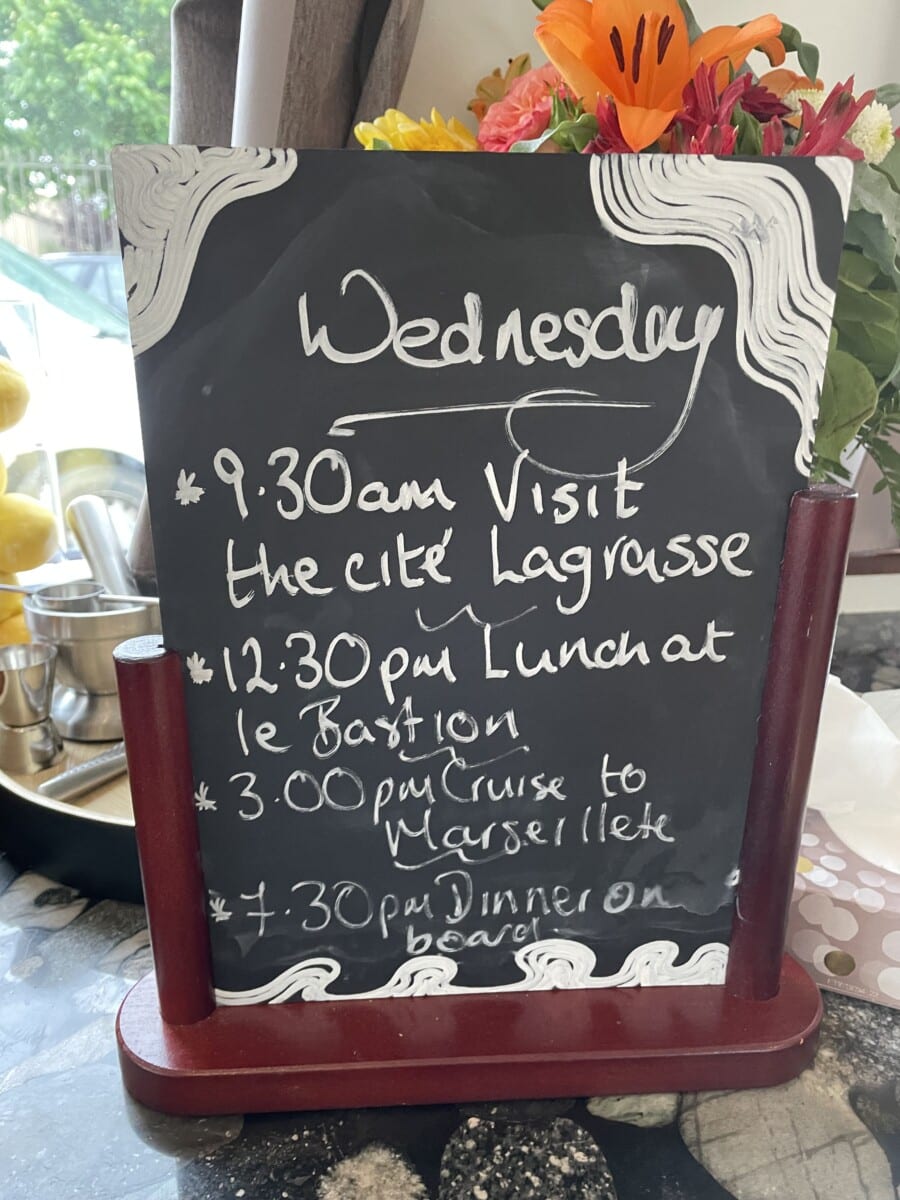 Wednesday
* 9.30am Visit
the cité Lagrasse
* 12.30pm Lunch at
le Bastion
* 3.00pm Cruise to
Marseillete
* 7.30pm Dinner on
board.